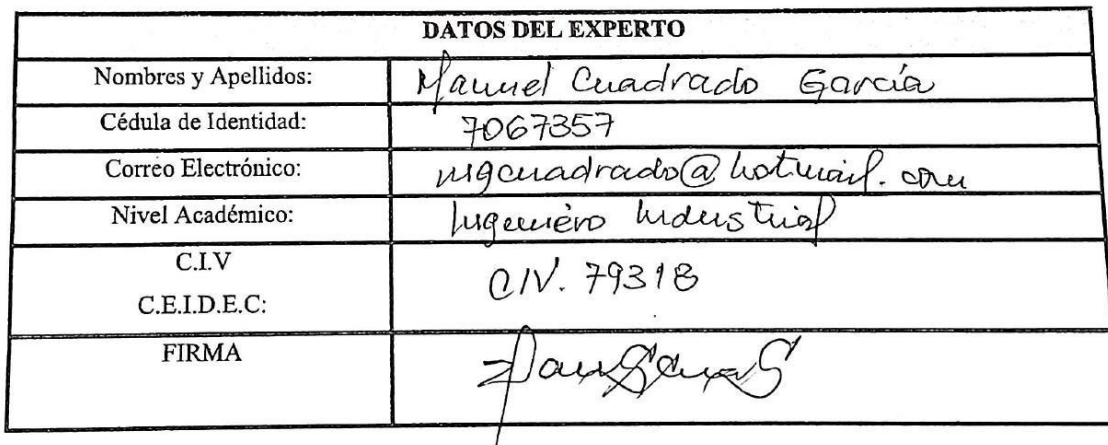 DATOS DEL EXPERTO
Nombres y Apellidos: Manuel Cuadrado García
Cédula de Identidad: 7067357
Correo Electrónico: mgcuadrado@hotmail.com
Nivel Académico: Ingeniero Industrial
C.I.V
C.E.I.D.E.C: CIV. 79318
FIRMA